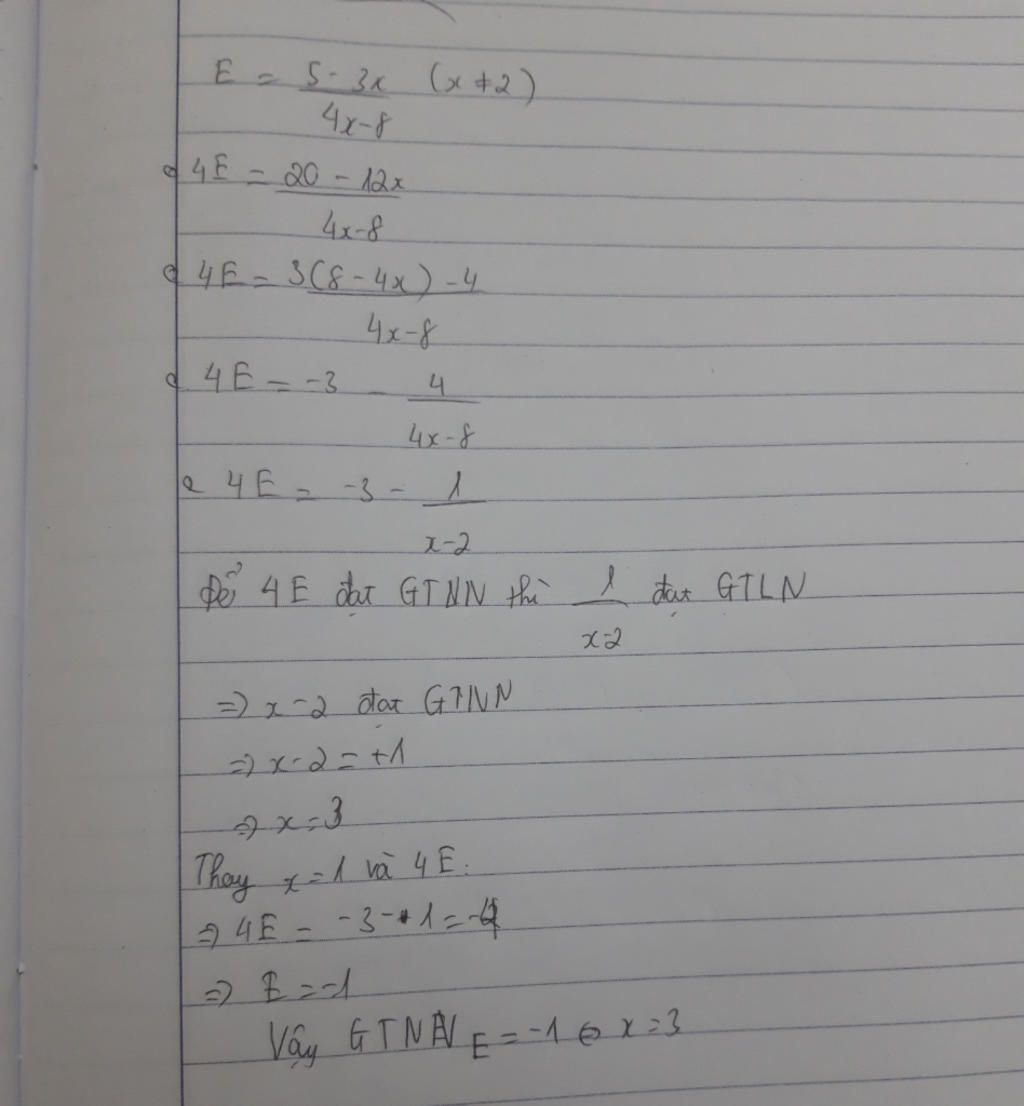 E = 5 - 3x / 4x-8 (x ≠ 2)
4E = 20 - 12x / 4x-8
4E = 3(8 - 4x) - 4 / 4x-8
4E = -3 - 4 / 4x-8
4E = -3 - 1 / x-2
Để 4E đạt GTNN thì 1 / x-2 đạt GTLN
=> x-2 đạt GTNN
=> x-2 = +1
=> x = 3
Thay x = 1 và 4E:
=> 4E = -3 - 1 = -4
=> E = -1
Vậy GTNN E = -1 ⇔ x = 3